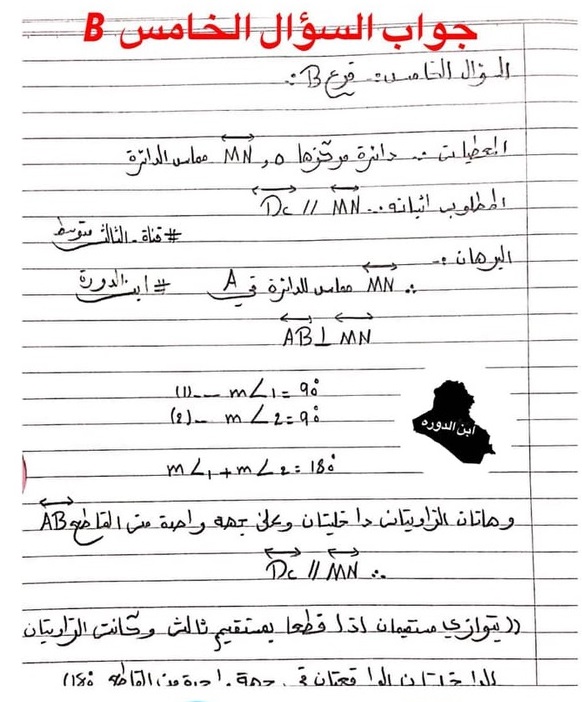 جواب السؤال الخامس B
السؤال الخامس:- فرع B :-
المعطيات :- دائرة مركزها O , MN مماس الدائرة
المطلوب اثباته :- DC // MN
# قناة_الثالث متوسط
البرهان :-
∴ MN مماس للدائرة في A
# ابن الدورة
AB ⊥ MN
(1)-- m∠1 = 90°
(2)- m∠2 = 90°
ابن الدوره
m∠1 + m∠2 = 180°
وهاتان الزاويتان داخليتان وعلى جهة واحدة من القاطع AB
∴ DC // MN
(( يتوازى مستقيمان اذا قطعا بمستقيم ثالث وكانت الزاويتان
الداخليتان الواقعتان في جهة واحدة من القاطع 180°))